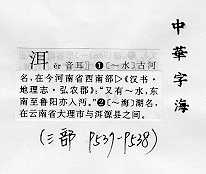 中華字海
洱 ěr 音耳 ❶[~水]古河
名,在今河南省西南部▷《汉书·
地理志·弘农郡》:“又有~水,东
南至鲁阳亦入沔。”❷[~海]湖名,
在云南省大理市与洱源县之间。
(氵部 P537-P538)